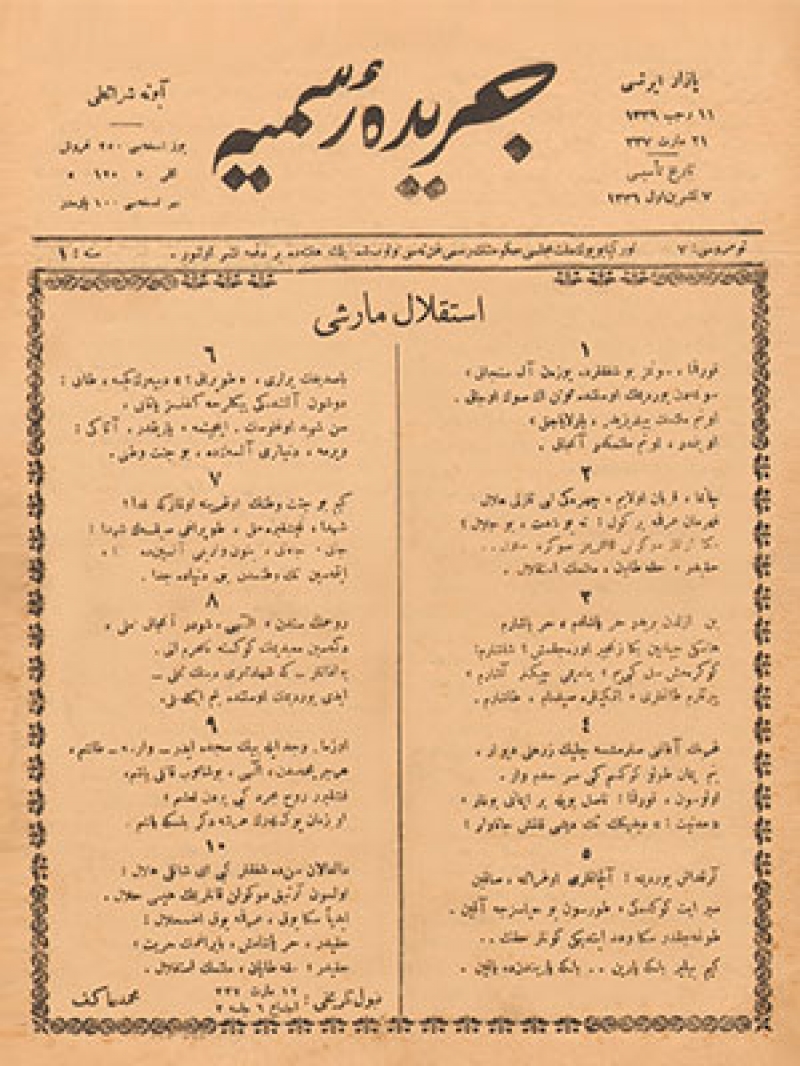 جريدهٔ رسميه
پازار ايرتسى
١١ رجب ١٣٣٩
٢١ مارت ٣٣٧
تاريخ تأسيسى
٧ تشرين اول ١٣٣٦
آبونه شرائطى
يوز نسخه‌سى ٢٥٠ غروش
اللى » ١٢٥ »
بر نسخه‌سى ١٠٠ پاره‌در
نومروسى: ٧
سنه : ١
استقلال مارشى
١
قورقما ، سونمز بو شفقلرده يوزن آل سنجاق ؛
سونمه‌دن يوردمك اوستنده توتن اك صوك اوجاق .
او بنم ملتمك ييلديزيدر ، پارلاياجق ؛
او بنمدر ، او بنم ملتمكدر آنجاق .
٢
چاتما ، قربان اولايم ، چهره‌كى اى نازلى هلال
قهرمان عرقمه بر كول ! نه بو شدت ، بو جلال ؟
سكا اولماز دوكولن قانلريمز صوكره حلال ..
حقيدر ، حقه طاپان ، ملتمك استقلال .
٣
بن ازلدن بريدر حر ياشادم ، حر ياشارم
هانكى چيلغين بكا زنجير اوره‌جقمش ؟ شاشارم !
كوكره‌مش سل كبى‌يم ؛ بندمى چيكنر آشارم ؛
ييرتارم طاغلرى ، انكينلره صيغمام ، طاشارم .
٤
غربك آفاقنى صارمشسه چليك زرهلى ديوار ،
بم ايمان طولو كوكسم كبى سرحدم وار .
اولوسون ، قورقما ! ناصل بويله بر ايمانى بوغار ،
«مدنيت !» ديديكك تك ديشى قالمش جاناوار ؟
٥
آرقداش يورديمه آلچاقلرى اوغراتمه ، صاقين
سپر ايت كوكسكى ، طورسون بو حياسزجه آقين .
طوغه‌جقدر سكا وعد ايتديكى كونلر حقك ..
كيم بيلير بلكه يارين .. بلكه يارين‌دن‌ده ياقين .
٦
باصديغك يرلرى ، «طوپراق !» ديه‌رك كچمه ، طانى :
دوشون آلتنده‌كى بيكلرجه كفنسز ياتانى .
سن شهيد اوغلوسك ، اينجيتمه ، يازيقدر ، آتاكى :
ويرمه ، دنيالرى آلسه‌ك‌ده ، بو جنت وطنى .
٧
كيم بو جنت وطنك اوغرينه اولماز كه فدا ؟
شهدا ، فيشقيره‌جق ، طوپراغى صيقسه‌ك شهدا :
ايتمه‌سين تك وطنمدن بنى دنياده جدا .
٨
روحمك سندن ، الهى ، شودر آنجاق املى ،
دكمه‌سين معبديمك كوكسنه نامحرم الى .
بو اذانلر ـ كه شهادتلرى دينك تملى ـ
ابدى يورديمك اوستنده بنم ايكله‌ملى .
٩
او زمان وجدايله بيك سجده ايدر ـ وارسه ـ طاشم ،
هر جريحه‌مدن ، الهى ، بوشانوب قانلى ياشم،
فيشقيرر روح مجرد كبى يردن نعشم ؛
او زمان يوكسله‌رك عرشه دكر بلكه باشم .
١٠
دالغالان سن‌ده شفقلر كبى اى شانلى هلال !
اولسون آرتيق دوكولن قانلريمك هپسى حلال .
ابدياً سكا يوق ، عرقمه يوق اضمحلال !
حقيدر ، حر ياشامش ، بايراغمك حريت ؛
حقيدر ، حقه طاپان ، ملتمك استقلال .
قبول تاريخى : ١٢ مارت ٣٣٧
محمد عاكف